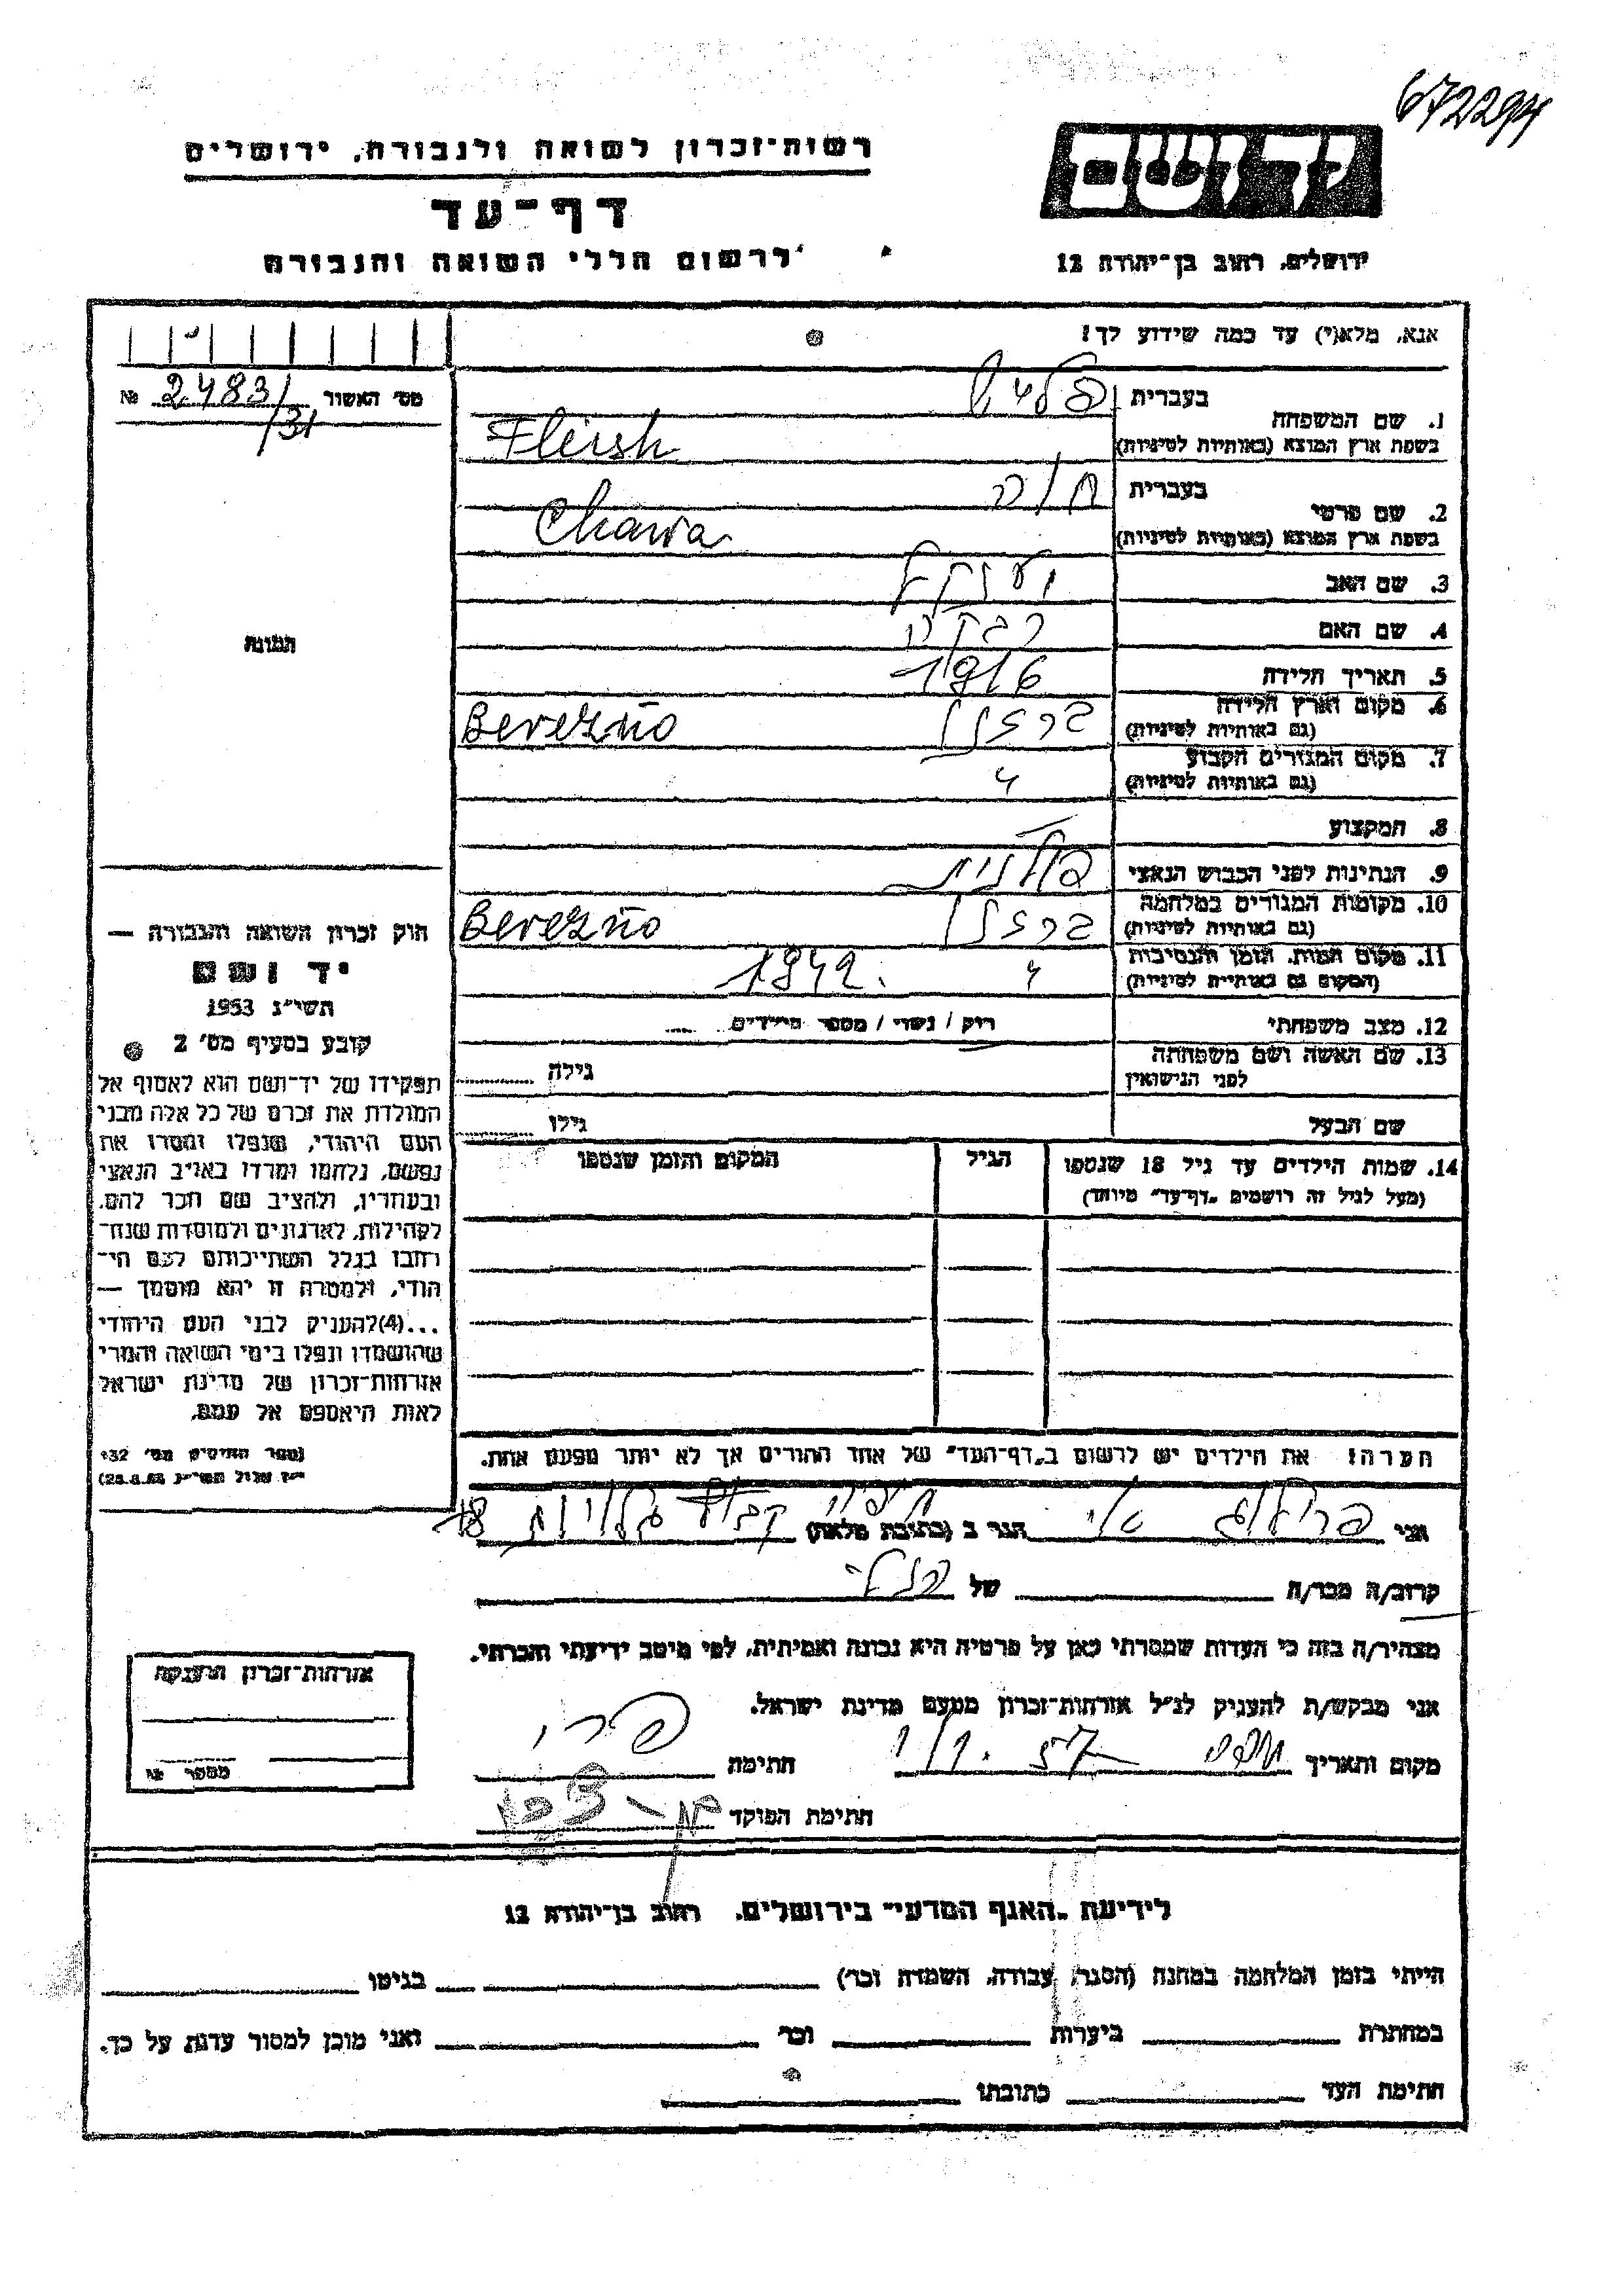 672294
רשות־זכרון לשואה ולגבורה, ירושלים
דף־עד
לרשום חללי השואה והגבורה
יד ושם
ירושלים, רחוב בן־יהודה 12
אנא, מלא(י) עד כמה שידוע לך!
מס׳ האשור 2483/31 №
1. שם המשפחה
בעברית פליש
בשפת ארץ המוצא (באותיות לטיניות) Fleish
2. שם פרטי
בעברית חוה
בשפת ארץ המוצא (באותיות לטיניות) Chawa
3. שם האב יענקל
4. שם האם רבקה
5. תאריך הלידה 1916
6. מקום וארץ הלידה ברזנו Berezno
(גם באותיות לטיניות)
7. מקום המגורים הקבוע 〃
(גם באותיות לטיניות)
8. המקצוע
9. הנתינות לפני הכבוש הנאצי פולנית
10. מקומות המגורים במלחמה ברזנו Berezno
(גם באותיות לטיניות)
11. מקום המות, הזמן והנסיבות 〃 1942.
(המקום גם באותיות לטיניות)
12. מצב משפחתי רוק / נשוי / מספר הילדים
13. שם האשה ושם משפחתה גילה
לפני הנישואין
שם הבעל גילו
14. שמות הילדים עד גיל 18 שנספו הגיל המקום והזמן שנספו
(מעל לגיל זה רושמים „דף־עד״ מיוחד)
הערה: את הילדים יש לרשום ב„דף־העד״ של אחד ההורים אך לא יותר מפעם אחת.
התמונה
חוק זכרון השואה והגבורה —
יד ושם
תשי״ג 1953
קובע בסעיף מס׳ 2
תפקידו של יד־ושם הוא לאסוף אל
המולדת את זכרם של כל אלה מבני
העם היהודי, שנפלו ומסרו את
נפשם, נלחמו ומרדו באויב הנאצי
ובעוזריו, ולהציב שם וזכר להם,
לקהילות, לארגונים ולמוסדות שנח־
רבו בגלל השתייכותם לעם הי־
הודי, ולמטרה זו יהא מוסמך —
...(4) להעניק לבני העם היהודי
שהושמדו ונפלו בימי השואה והמרי
אזרחות־זכרון של מדינת ישראל
לאות היאספם אל עמם.
(ספר החוקים מס׳ 132
י״ז אלול תשי״ג 28.8.53)
אני הגר ב (כתובת מלאה) חיפה קבוץ גלויות 48
קרוב/ה מכר/ה של
מצהיר/ה בזה כי העדות שמסרתי כאן על פרטיה היא נכונה ואמיתית, לפי מיטב ידיעתי והכרתי.
אני מבקש/ת להעניק לנ״ל אזרחות־זכרון מטעם מדינת ישראל.
מקום ותאריך חיפה חתימה
חתימת הפוקד
אזרחות־זכרון הוענקה
מספר №
לידיעת „האגף המדעי״ בירושלים, רחוב בן־יהודה 12
הייתי בזמן המלחמה במחנה (הסגר, עבודה, השמדה וכו׳) בגיטו
במחתרת ביערות וכו׳ ואני מוכן למסור עדות על כך.
חתימת העד כתובתו